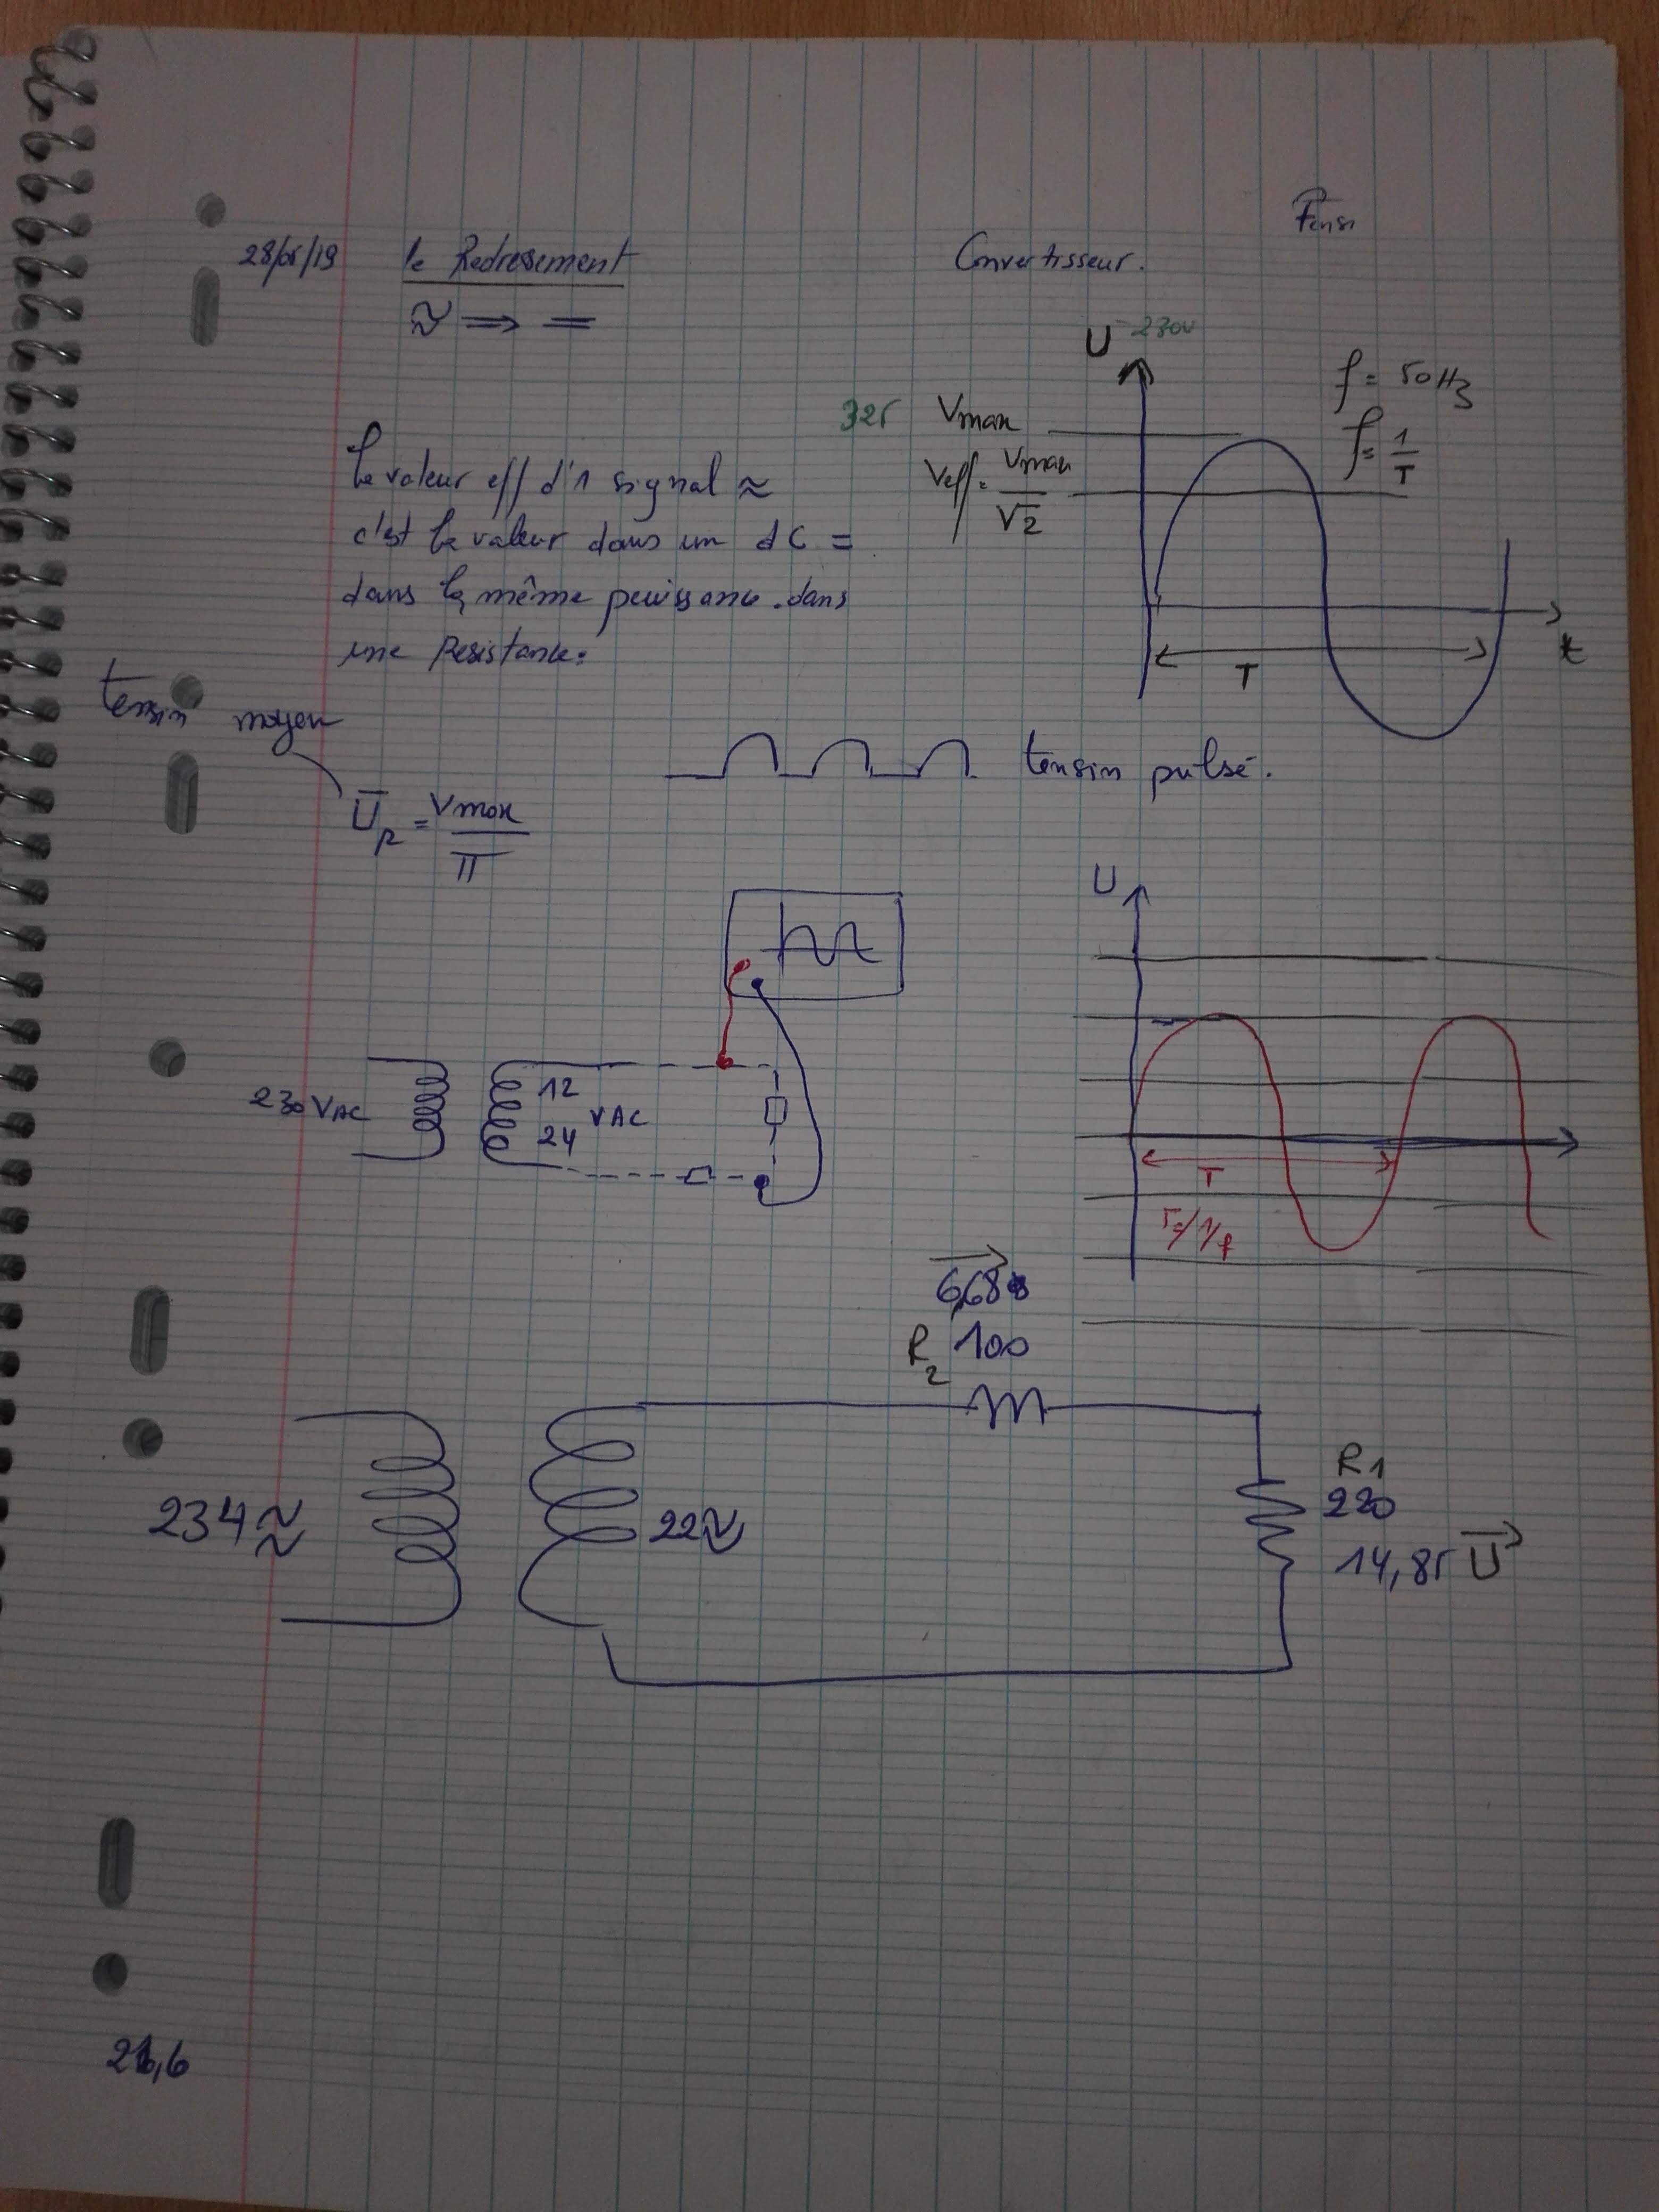 Tensi
28/05/19 le Redressement Convertisseur.
≈ ⇒ =
U 230V
f = 50Hz
325 Vmax
f = 1/T
Veff = Vmax/√2
La valeur eff d'1 signal ≈
c'est la valeur dans un dC =
dans la même puissance dans
une Resistance:
T
t
tensin moyen
tensin pulsé.
Up = Vmax/π
U
230 VAC
12
24
VAC
T
T=1/f
6,68
R2 100
R1
220
14,85 U
234 ≈
22